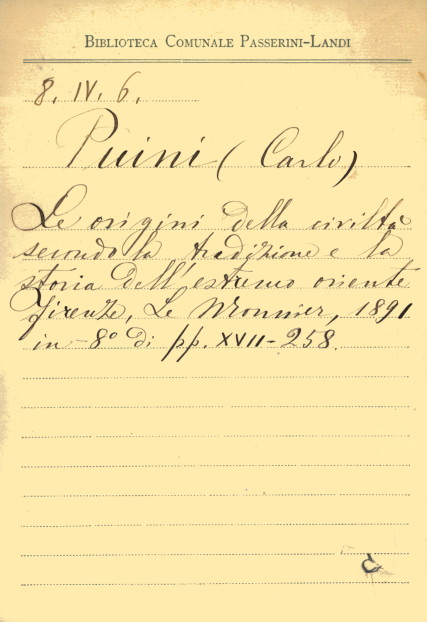 BIBLIOTECA COMUNALE PASSERINI-LANDI
8. IV. 6.
Puini (Carlo)
Le origini della civiltà
secondo la tradizione e la
storia dell'estremo oriente
Firenze, Le Monnier, 1891
in-8° di pp. XVII-258.